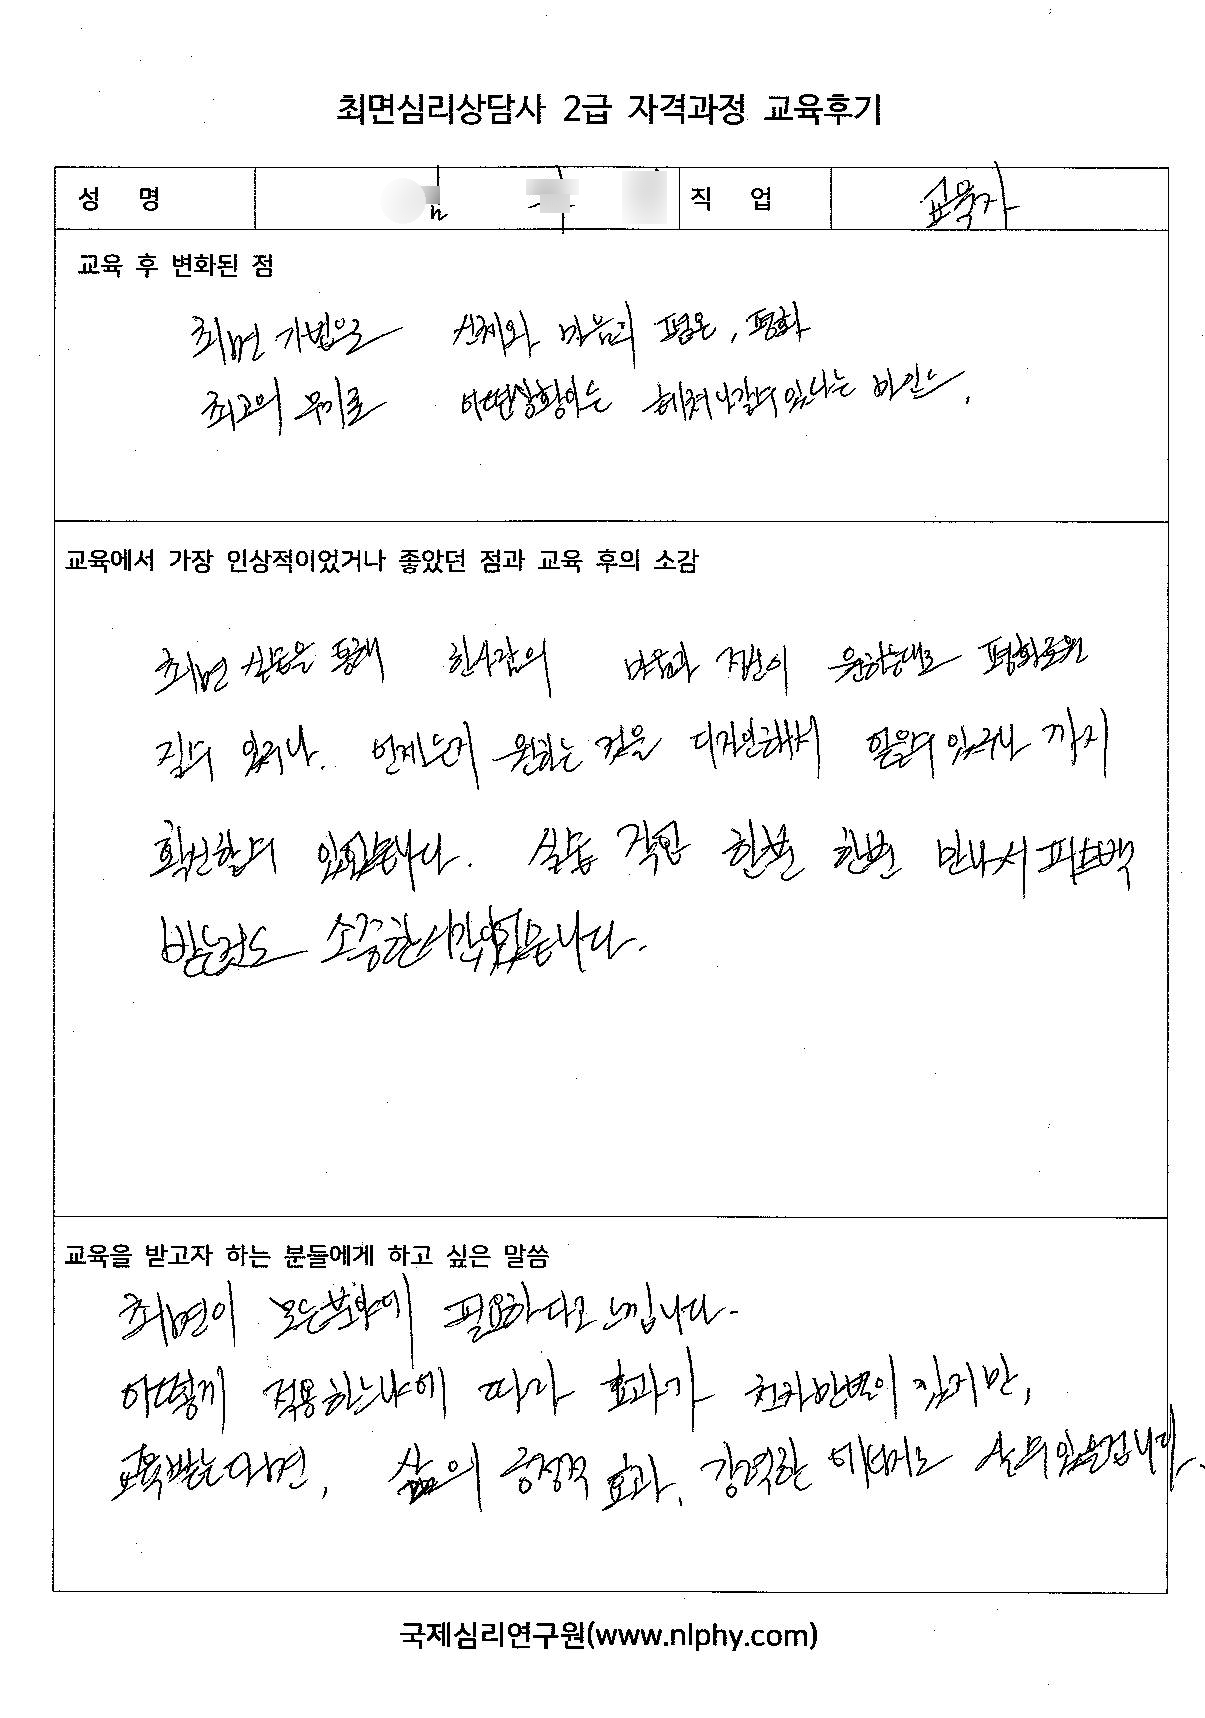 최면심리상담사 2급 자격과정 교육후기
성 명 직 업 교육자
교육 후 변화된 점
최면 기법으로 신체와 마음의 평온, 평화
최고의 무기로 어떤상황이든 헤쳐나갈수있다는 마인드.
교육에서 가장 인상적이었거나 좋았던 점과 교육 후의 소감
최면 실습을 통해 한사람의 마음과 정신이 원하는대로 평화로워
질수 있거나. 언제든지 원하는 것을 디자인해서 얻을수 있구나 까지
확신할수 있었습니다. 실습 직접 한분 한분 만나서 피드백
받는것도 소중한시간이었습니다.
교육을 받고자 하는 분들에게 하고 싶은 말씀
최면이 모든분야에 필요하다고 느낍니다.
어떻게 적용하느냐에 따라 효과가 천차만별이 있지만,
교육받는다면, 삶의 긍정적 효과, 강력한 에너지로 살수있을겁니다.
국제심리연구원(www.nlphy.com)